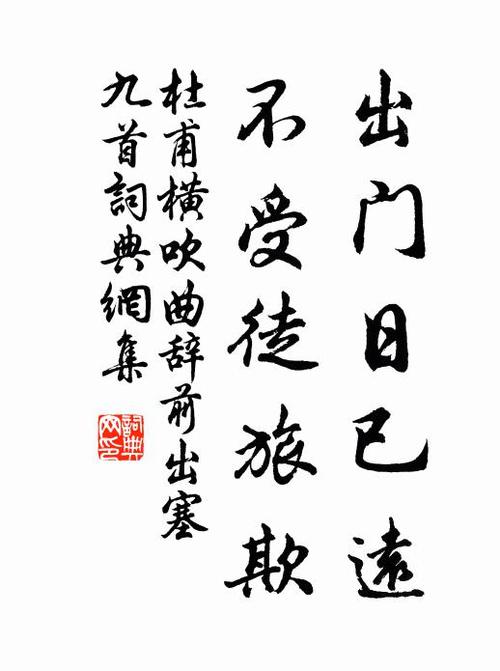 出门日已遠
不受徒旅欺
杜甫横吹曲辞前出塞
九首詞典網集
詞典网印